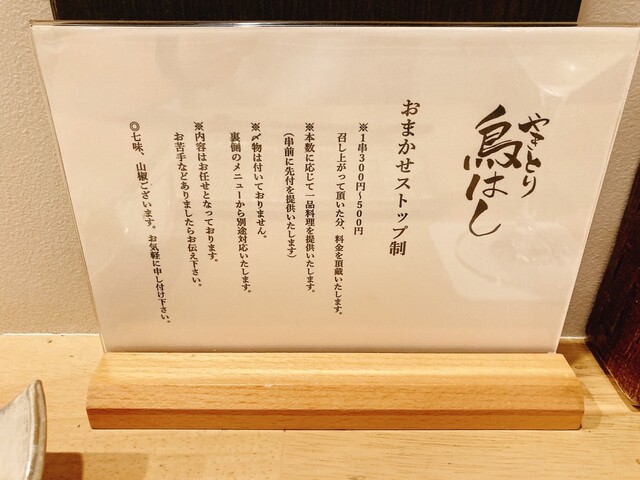 やきとり
鳥はし
おまかせストップ制
※1串300円〜500円
召し上がって頂いた分、料金を頂戴いたします。
※本数に応じて一品料理を提供いたします。
（串前に先付を提供いたします）
※〆物は付いておりません。
裏側のメニューから別途対応いたします。
※内容はお任せとなっております。
お苦手などありましたらお伝え下さい。
◎七味、山椒ございます。お気軽に申し付け下さい。